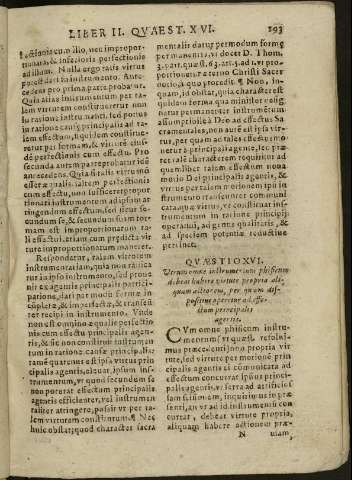 LIBER II. QVAEST. XVI. 193
fectionis cum illo, nec impropor-
tionata, & inferioris perfectionis
ad illum. Nulla ergo ratis virtus
poterit dari tali instrumento. Ante-
cedens pro prima parte probatur.
Quia alias instrumentum per ta-
lem virtutem non constitueretur
in ratione instrumenti, sed potius
in ratione causæ principalis ad ta-
lem effectum, quia idem constitue-
retur per formam, & virtutem eiusf-
dē perfectionis cum effectu. Pro
secunda autem parte probatur idē
antecedens. Quia si talis virtus nō
esset æqualis saltem perfectionis
cum effectu, non sufficeret propor-
tionari instrumentum ad ipsum at-
tingendum effectum, sed sicut se-
cundum se, & secundum suam for-
mam est improportionatum ta-
li effectui, etiam cum prædicta vir-
tute improportionatum maneret.
Respondetur, talem virtutem
instrumentariam, quia non est na-
tura ipso instrumento, sed prouē
niens à virtute agentis partici-
patione, dari per modo formæ in-
completæ, & imperfectæ, & transeū
ter recipi in instrumento. Vnde
non est omnino æqualis perfectio-
nis cum effectu principalis agentis,
quia non constituit instrumentum
in ratione causæ principalis; tan-
tū quamuis est ipsius virtus prin-
cipalis agentis, eleuat ipsum ins-
trumentum, vt quod secundum se
non poterat effectum principalis
agentis efficienter, vel instrumen-
taliter attingere, possit vt per ta-
lem virtutem constitutum. Nec
huic obstat; quod character sacra
mentalis datur per modum formæ
permanentis, vt docet D. Thom.
3. part. quæst. 63. art. 5. ad 1. vt pro-
portionetur æterno Christi Sacer
dotio, à quo procedit. Non, in-
quam, id obstat, quia character est
quidam ordo, & qualitas, qua insti-
tuitur homo Minister potens in-
strumentaliter à Deo ad effectus Sa-
cramentales, non autē est ipsa vir-
tus, per quam ad tales effectus mo-
netur à principali agente, sed præ-
ter talē characterem requiritur ad
quemlibet effectum noua motio
motio Dei principalis agentis, &
virtus per talem motionem ipsi in
strumento transeunter communi-
cata, quæ virtus constituit instru-
mentum in ratione principij
operandi, ad genus qualitatis, &
ad speciem potentiæ reductiue
pertinet.
QVÆSTIO XVI.
Vtrum omne instrumentum phisicum
debeat habere virtutem propriam ali-
quam actionem, per quam dis-
positiue operetur ad effec-
tum principalis
agentis.
CVm omne phisicum instru-
mentum, vt quæst. resolui-
mus præcedenti, non propria vir-
tute, sed virtute per motionē prin-
cipalis agentis ei comunicata ad
effectum concurrat ipsius princi-
palis agentis, vt serra ad artificis-
sam scissionem, inquirimus in præ-
senti, an vt ad id instrumentū con-
currat, debeat virtute propria,
aliquam habere actionem præ-
N uiam,